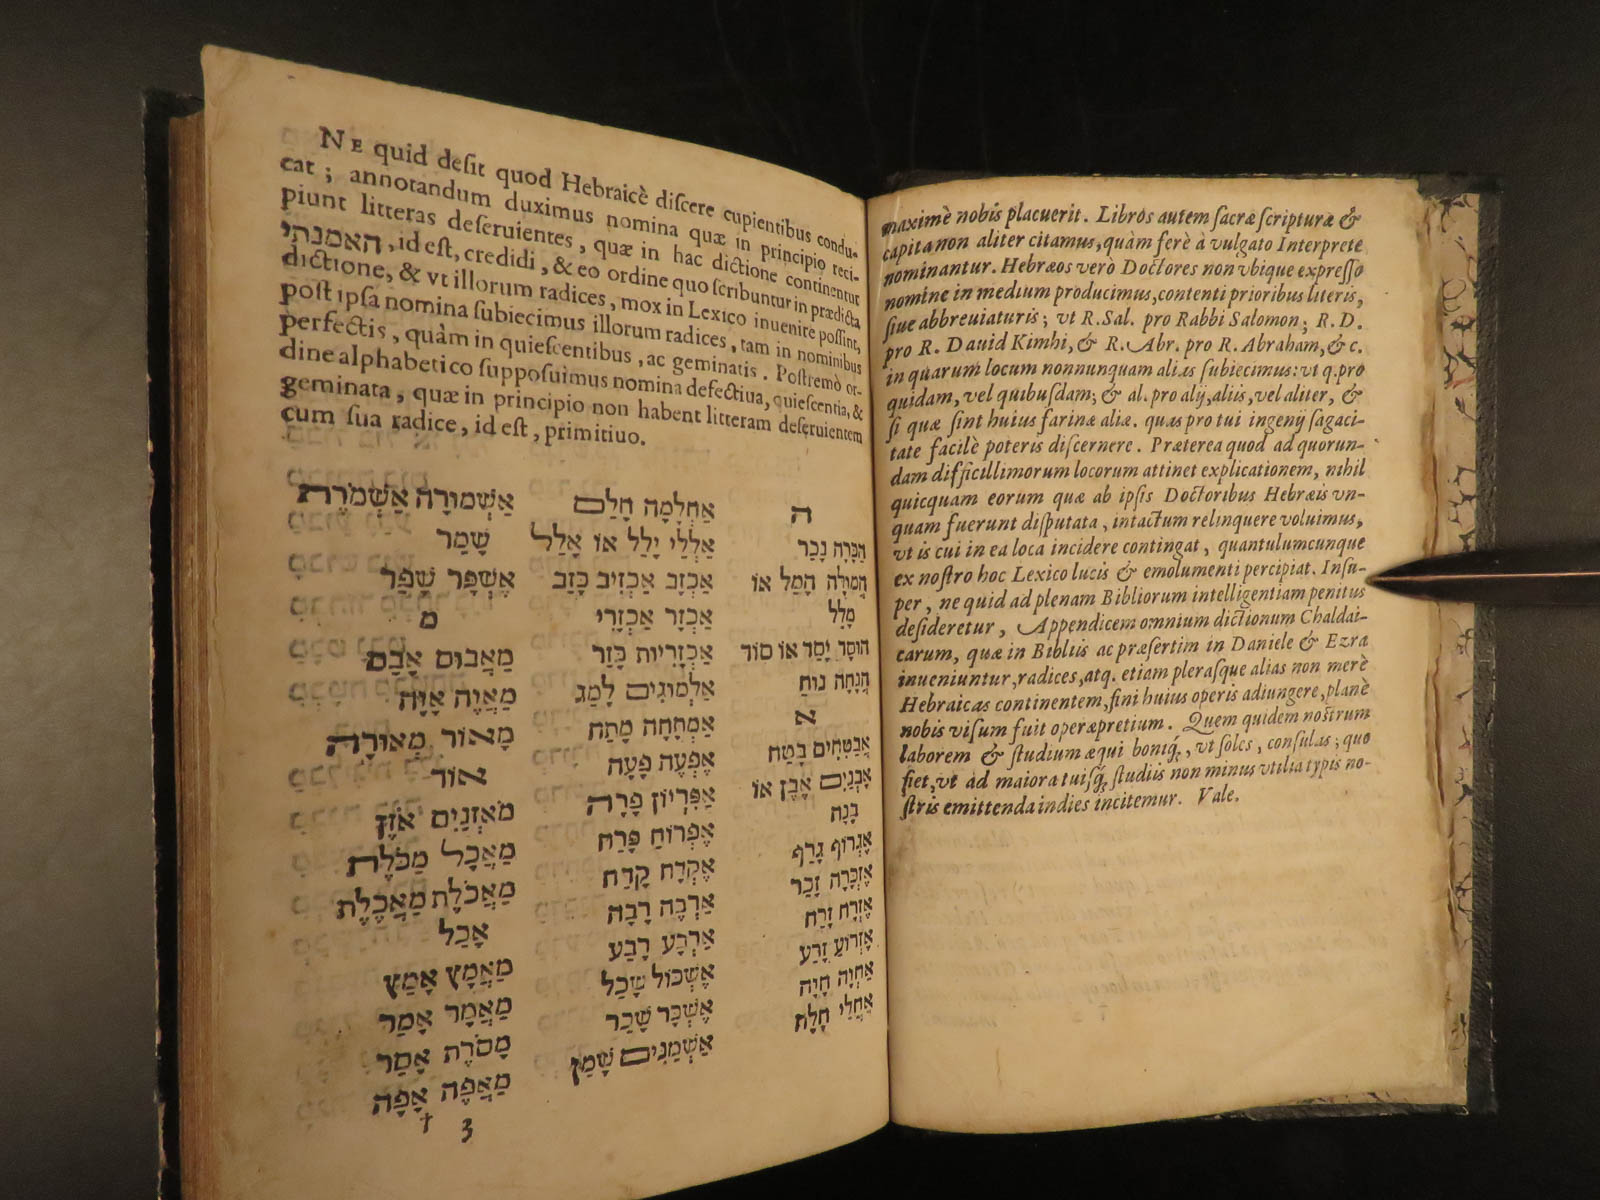 maximè nobis placuerit. Libros autem ſacræ ſcripturæ &
capita non aliter citamus, quàm ferè à vulgato Interprete
nominantur. Hebræos verò Doctores non vbique expreſſo
nomine in medium producimus, contenti prioribus literis,
ſiue abbreuiaturis; vt R. Sal. pro Rabbi Salomon; R. D.
pro R. Dauid Kimhi, & R. Abr. pro R. Abraham, & c.
in quarum locum nonnunquam alias ſubiecimus: vt q. pro
quidam, vel quibuſdam; & al. pro alij, aliis, vel aliter, &
ſi quæ ſint huius farinæ aliæ. quas pro tui ingenij ſagaci-
tate facilè poteris diſcernere. Præterea quod ad quorun-
dam difficillimorum locorum attinet explicationem, nihil
quicquam eorum quæ ab ipſis Doctoribus Hebræis vn-
quam fuerunt diſputata, intactum relinquere voluimus,
vt is cui in ea loca incidere contingat, quantulumcunque
ex noſtro hoc Lexico lucis & emolumenti percipiat. Inſu-
per, ne quid ad plenam Bibliorum intelligentiam penitus
deſideretur, Appendicem omnium dictionum Chaldai-
carum, quæ in Bibliis ac præſertim in Daniele & Ezra
inueniuntur, radices, atq. etiam pleraſque alias non merè
Hebraicas continentem, fini huius operis adiungere, planè
nobis viſum fuit operæpretium. Quem quidem noſtrum
laborem & ſtudium æqui boniq́, vt ſoles, conſulas; quo
fiet, vt ad maiora tuiſq́; ſtudiis non minus vtilia typis no-
ſtris emittenda indies incitemur. Vale.
NE quid deſit quod Hebraicè diſcere cupientibus condu-
cat; annotandum duximus nomina quæ in principio reci-
piunt litteras deſeruientes, quæ in hac dictione continentur
האמנתי, id eſt, credidi, & eo ordine quo ſcribuntur in prædicta
dictione, & vt illorum radices, mox in Lexico inuenire poſſint,
poſt ipſa nomina ſubiecimus illorum radices, tam in nominibus
perfectis, quàm in quieſcentibus, ac geminatis. Poſtremò or-
dine alphabetico ſuppoſuimus nomina defectiua, quieſcentia, &
geminata, quæ in principio non habent litteram deſeruientem
cum ſua radice, id eſt, primitiuo.
ה
הַכָּרָה נָכַר
הֲמוּלָּה הָמַל אוֹ
מָלַל
הוּסָר יָסַר אוֹ סוּר
הֲנָחָה נוּחַ
א
אֲבַטִּחִים בָּטַח
אָבְנַיִם אֶבֶן אוֹ
בָנָה
אֶגְרוֹף גָּרַף
אַזְכָּרָה זָכַר
אֶזְרָח זָרַח
אֶזְרוֹעַ זָרַע
אַחְוָה חָוָה
אַחֲלַי חָלָה
אַחְלָמָה חָלַם
אַלְלַי יָלַל אוֹ אָלַל
אַכְזָב אַכְזִיב כָּזַב
אַכְזָר אַכְזָרִי
אַכְזָרִיּוּת כָּזַר
אַלְמוּגִים לָמַג
אַמְתַּחָה מָתַח
אֶפְעֶה פָעָה
אַפִּרְיוֹן פָּרָה
אֶפְרוֹחַ פָּרַח
אֶקְדָּח קָדַח
אַרְבֶּה רָבָה
אַרְבַּע רָבַע
אֶשְׁכּוֹל שָׁכַל
אֶשְׁכָּר שָׁכַר
אַשְׁמַנִּים שָׁמַן
אַשְׁמוּרָה אַשְׁמֹרֶת
שָׁמַר
אֶשְׁפָּר שָׁפַר
מ
מַאֲבוּס אָבַס
מַאֲוֶה אָוָה
מָאוֹר מְאוּרָה
אוֹר
מֹאזְנַיִם אֹזֶן
מַאֲכָל מַכֹּלֶת
מַאֲכֹלֶת מַאֲכֶלֶת
אָכַל
מַאֲמָץ אָמַץ
מַאֲמָר אָמַר
מָסֹרֶת אָסַר
מַאֲפֶה אָפָה
† 3